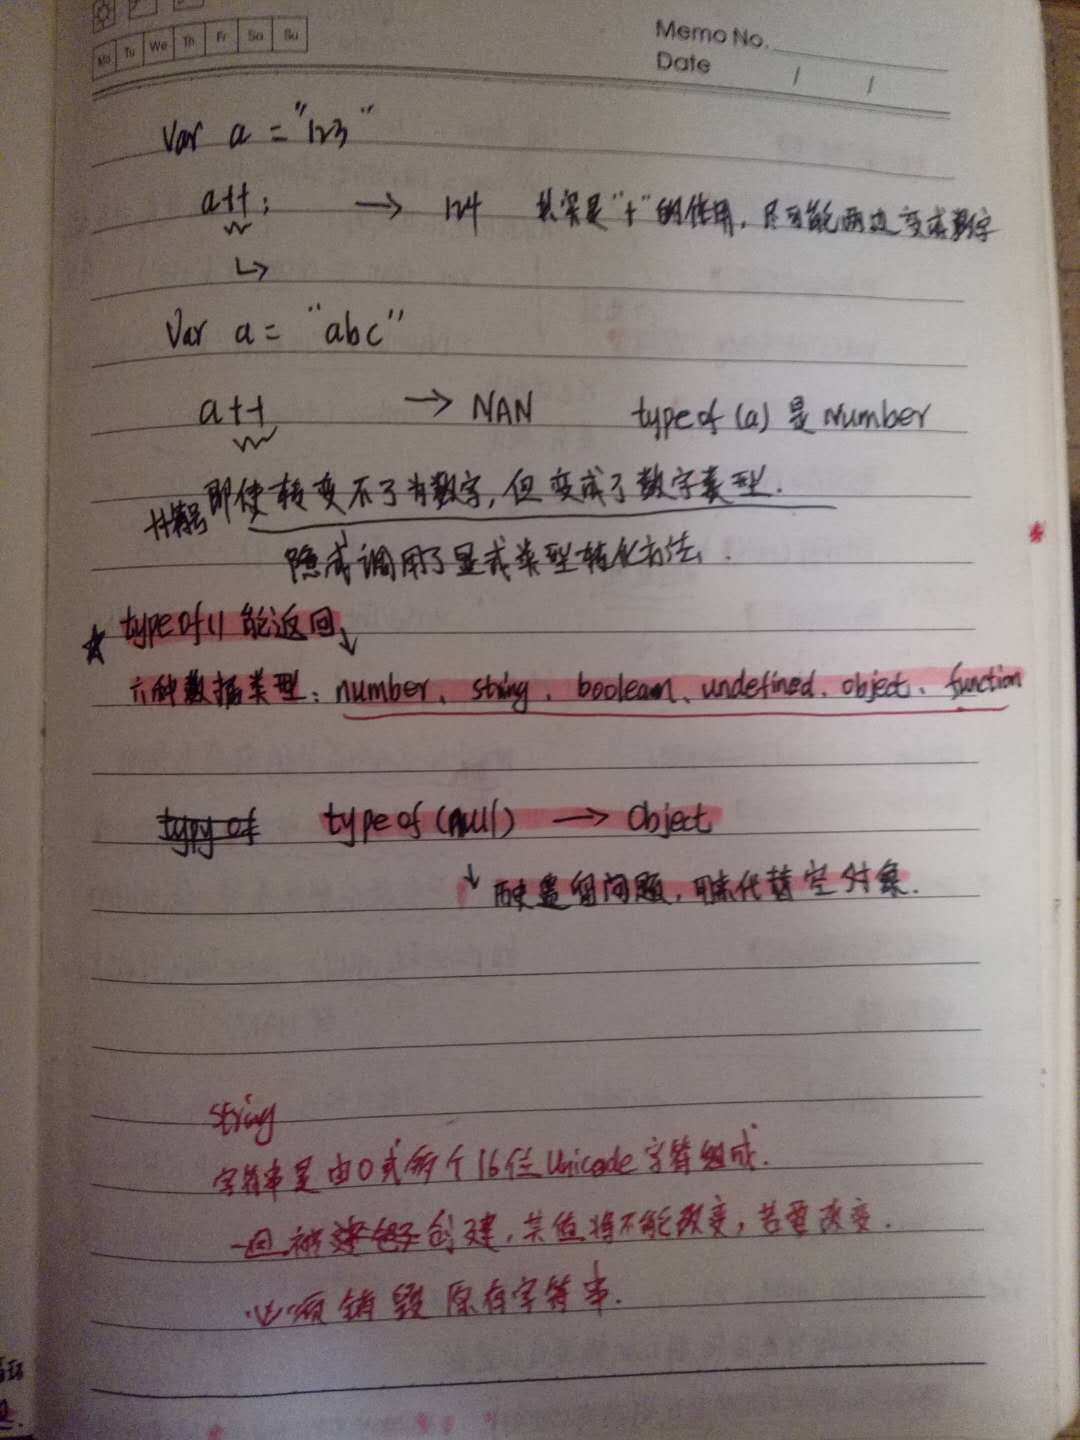 Mo Tu We Th Fr Sa Su
Memo No.
Date / /
Var a = "123"
a++; → 124 其实是"+"的作用，尽可能两边变成数字
↳
Var a = "abc"
a++ → NAN typeof (a) 是 number
即使转变不了为数字，但变成了数字类型.
隐式调用了显式类型转化方法.
★ typeof() 能返回↓
六种数据类型：number、string、boolean、undefined、object、function
typy of typeof (null) → Object
↓ 历史遗留问题，用来代替空对象.
string
字符串是由0或多个16位Unicode字符组成.
一旦被创建，其值将不能改变，若要改变.
必须销毁原有字符串.